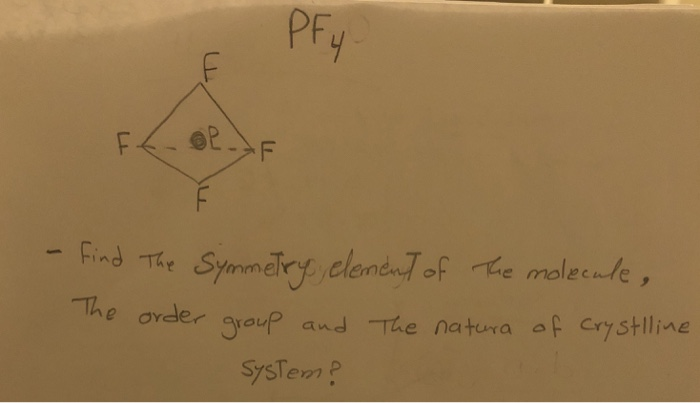 PF4
F
F P F
F
- Find The Symmetry element of The molecule,
The order group and The natura of Crystlline
System?